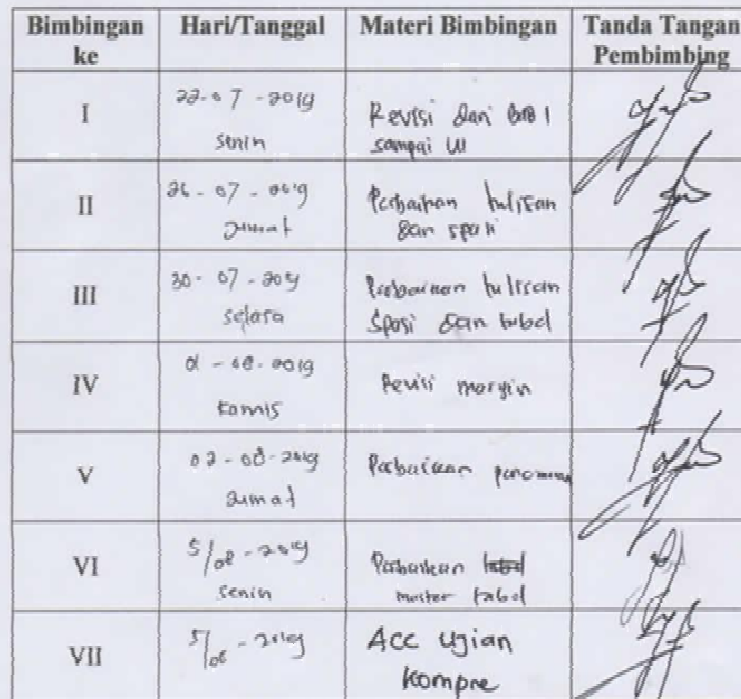 Bimbingan ke
Hari/Tanggal
Materi Bimbingan
Tanda Tangan Pembimbing
I
22-07-2019
Senin
Revisi dari BAB 1
sampai VI
II
26-07-2019
Jumat
Perbaikan tulisan
dan spasi
III
30-07-2019
Selasa
Perbaikan tulisan
Spasi dan tabel
IV
01-08-2019
Kamis
Revisi margin
V
02-08-2019
Jumat
Perbaikan
VI
5/08-2019
Senin
Perbaikan tabel
master tabel
VII
5/08-2019
Acc Ujian
Kompre